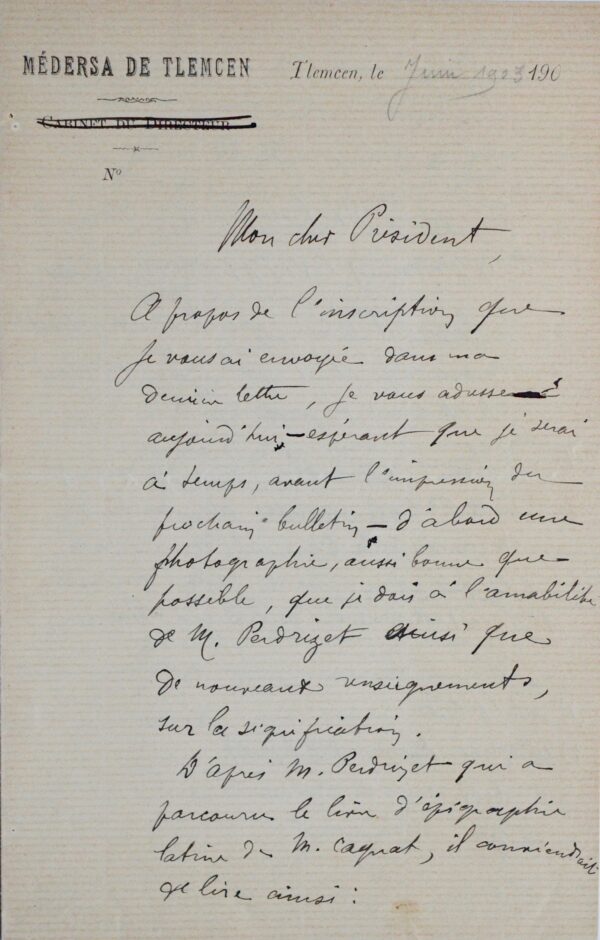 MÉDERSA DE TLEMCEN
Tlemcen, le Juin 1903 190
CABINET DU DIRECTEUR
No
Mon cher Président,
A propos de l'inscription que
je vous ai envoyée dans ma
dernière lettre, je vous adresse
aujourd'hui – espérant que je serai
à temps, avant l'impression du
prochain bulletin – d'abord une
photographie, aussi bonne que
possible, que je dois à l'amabilité
de M. Perdrizet ainsi que
de nouveaux renseignements,
sur la signification.
D'après M. Perdrizet qui a
parcouru le livre d'épigraphie
latine de M. Cagnat, il conviendrait
de lire ainsi :